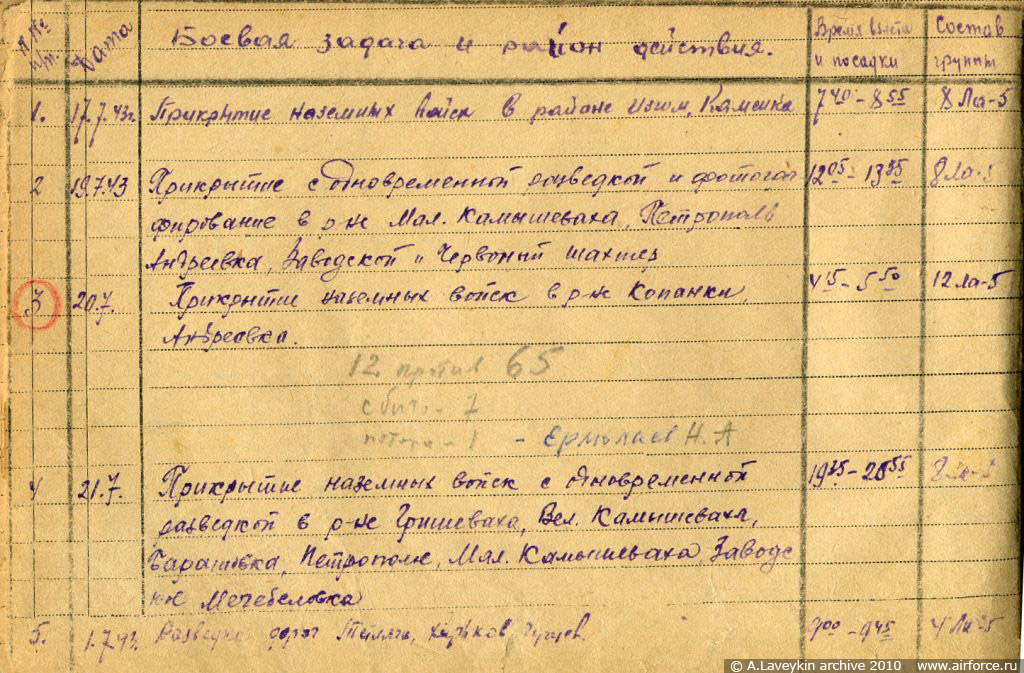 №№ Дата Боевая задача и район действия. Время взлета Состав
п/п. и посадки группы
1. 17.7.43г. Прикрытие наземных войск в районе Изюм, Каменка 7 40 - 8 55 8 Ла-5
2 19.7.43 Прикрытие с одновременной разведкой и фотогра 12 05 - 8 Ла-5
фирование в р-не Мал. Камышеваха, Петрополь
Андреевка, Заводской и Червоный шахтер
3 20.7. Прикрытие наземных войск в р-не Копанки, 4 45 - 5 50 12 Ла-5
Андреевка.
12 против 65
сбито - 7
потери - 1 - Ермолаев Н.А
4 21.7. Прикрытие наземных войск с одновременной 20 55 8 Ла-5
разведкой в р-не Гришеваха, Вел. Камышеваха,
Петрополье, Мал. Камышеваха, Заводс
Мечебеловка
5. 1.7.43г. Разведка дорог Харьков, Чугуев. 9 00 - 9 45 4 Ла-5
© A.Laveykin archive 2010 www.airforce.ru